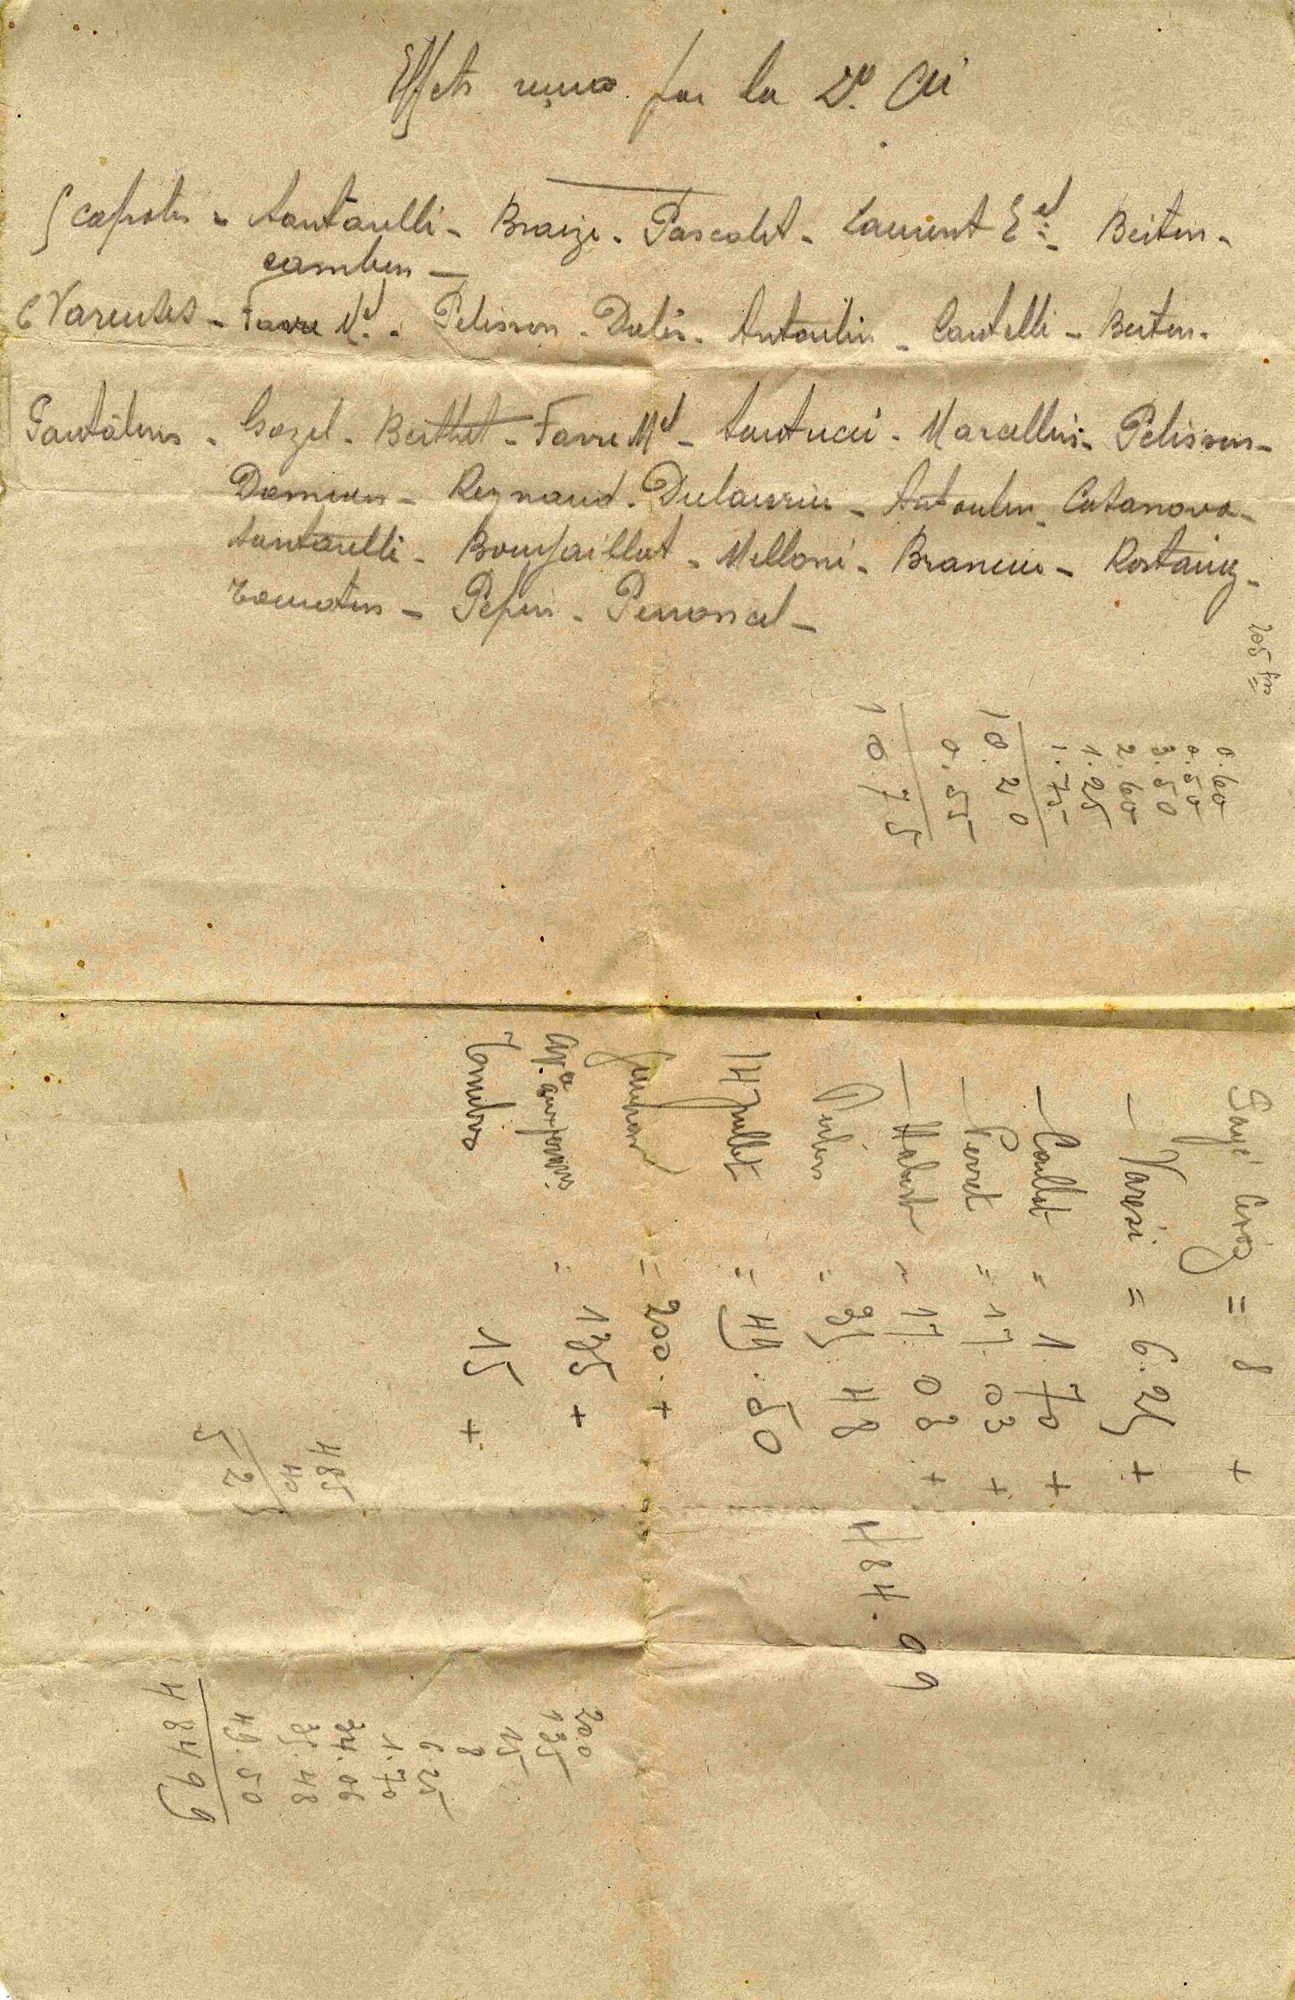 Effets reçus par la Dº Cie
5 capotes - Santarelli - Braize - Pascalet - Laurent Eel - Berton -
cambon -
6 Vareuses - Favre Mel - Pelisson - Antoulin - Cantelli - Berton -
Pantalons - Gozel - Berthet - Favre Mel - Santucci - Marcellin - Pelisson -
Damian - Reynaud - Dulaurier - Antoulin - Casanova -
Santarelli - Bompaillat - Melloni - Brancin - Rostaing -
Tournaton - Pépin - Perroncel -
205 frs
0.60
0.50
3.50
2.60
1.25
1.75
10.20
0.55
10.75
Payé = 8 +
- Varesi = 6.25 +
- Caillat " 1.70 +
- Perret " 17.03 +
- Habert " 17.03 +
" 35 48
14 juillet " 49.50
= 200. +
" 135 +
Timbres 15 +
484.99
485
40
525
200
135
15
8
6.25
1.70
34.06
35.48
49.50
484 99